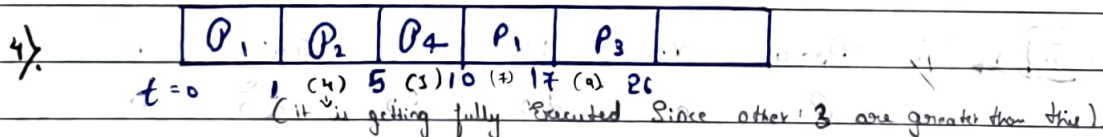 4).
P1 P2 P4 P1 P3 ..
t = 0 1 (4) 5 (5) 10 (7) 17 (9) 26
(it is getting fully Executed Since other 3 are greater than this)